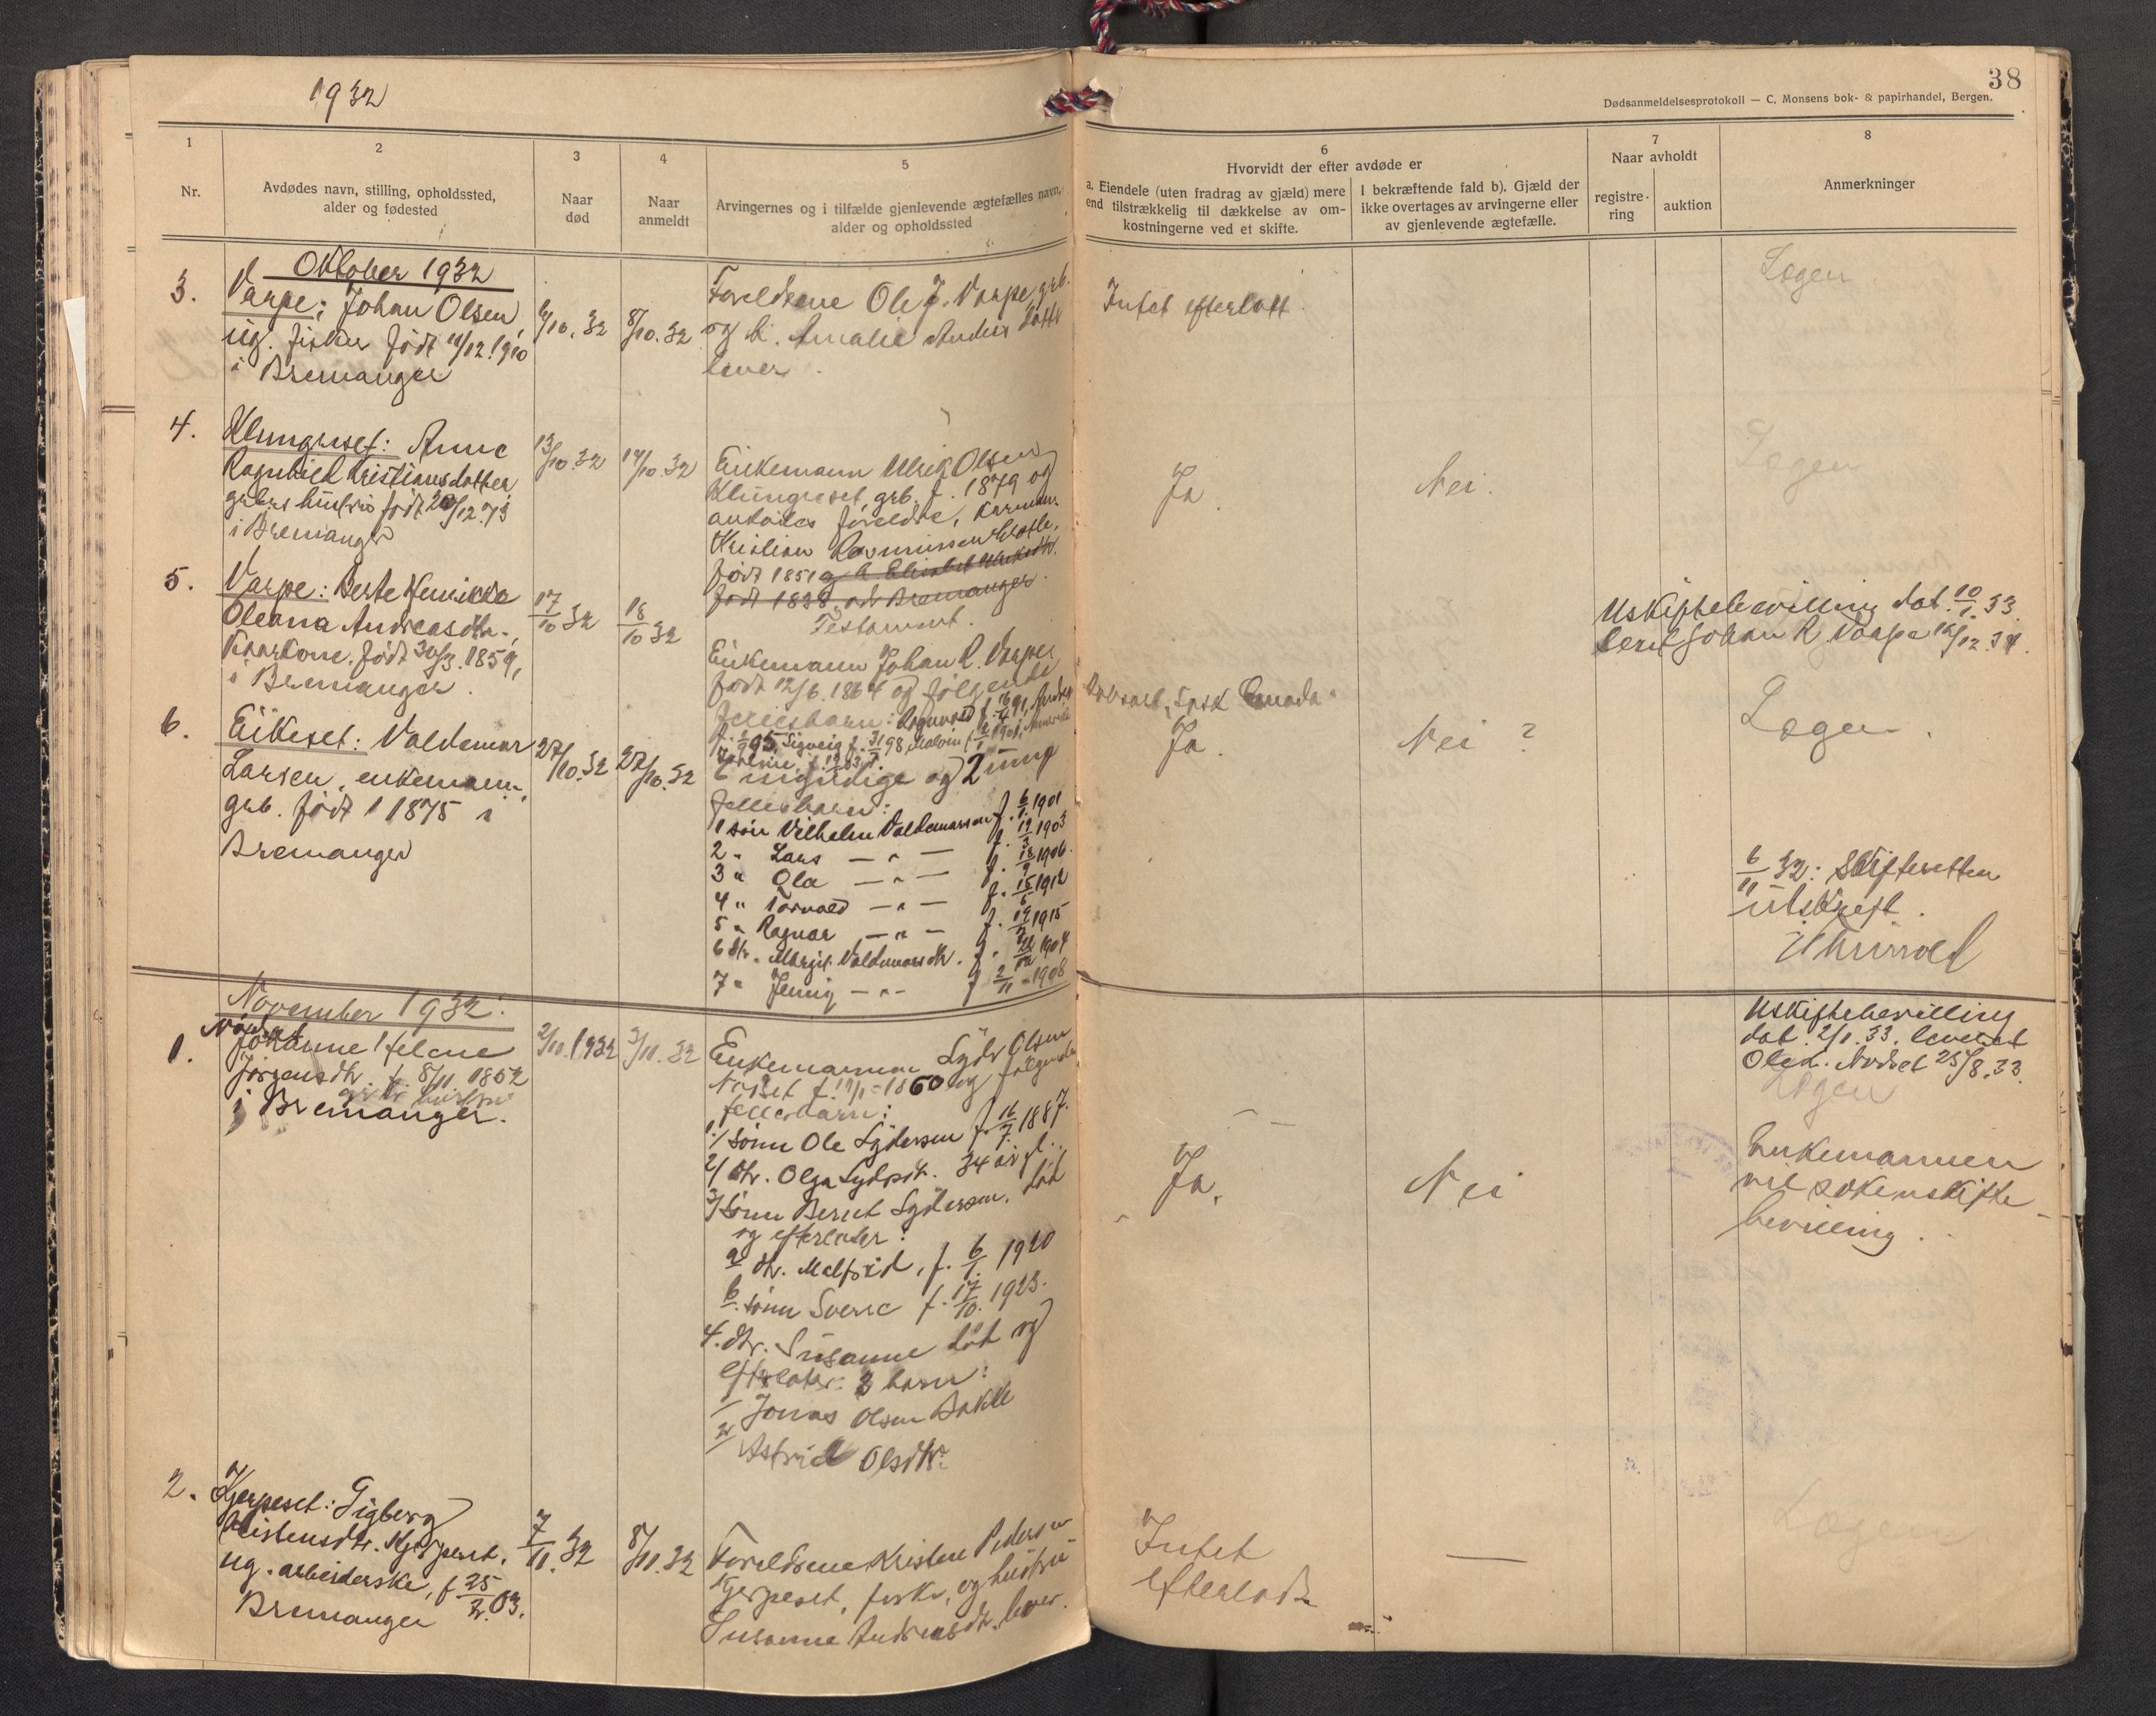 1932
38
Dødsanmeldelsesprotokoll — C. Monsens bok- & papirhandel, Bergen.
1
Nr.
2
Avdødes navn, stilling, opholdssted,
alder og fødested
3
Naar
død
4
Naar
anmeldt
5
Arvingernes og i tilfælde gjenlevende ægtefælles navn,
alder og opholdssted
6
Hvorvidt der efter avdøde er
a. Eiendele (uten fradrag av gjæld) mere
end tilstrækkelig til dækkelse av om-
kostningerne ved et skifte.
I bekræftende fald b). Gjæld der
ikke overtages av arvingerne eller
av gjenlevende ægtefælle.
7
Naar avholdt
registre-
ring
auktion
8
Anmerkninger
Oktober 1932
3.
Varpe; Johan Olsen,
ug. fisker født 11/12.1910
i Bremanger
6/10.32
8/10.32
Foreldrene Ole J. Varpe, grb.
og h. Amalie Anders datter
lever.
Intet efterlatt.
Logen
4.
Klungreset: Anne
Ragnhild Kristiansdatter
grbrs hustru født 20/12.73
i Bremanger
13/10.32
14/10.32
Enkemann Ulrik Olsen
Klungreset, grb. f. 1879 og
avdødes foreldre, kårmann
Kristian Rasmussen
født 1851 og h. Elisabet
født 1828, adr Bremanger.
Testament.
Ja
Nei.
Logen
5.
Varpe: Berte Henrikke
Oleana Andreasdtr.,
Kårkone, født 30/3.1859,
i Bremanger.
17/10 32
18/10 32
Enkemann Johan R. Varpe,
født 12/6.1864 og følgende
fellesbarn: Ragnvald
Canada
Ja.
Nei ?
Uskiftebevilling dat. 10/1.33.
Johan R. Varpe 12.34.
Logen.
6.
Eikeset: Valdemar
Larsen, enkemann,
grb. født i 1875 i
Bremanger
27/10.32
27/10.32
myndige og 2 umy
fellesbarn:
1 søn Vilhelm Valdemarsen f. 6/1.1901
2 " Lars — " — f. 19/3 1903
3 " Ola — " — f. 18/9 1906.
4 " Torvald — " — f. 15/6 1912
5 " Ragnar — " — f. 19/2 1915
6 dtr. Margit Valdemarsdtr. f. 1904
7 " Jenny — " — f. 2/11 - 1908
6/11 32: Skifteretten
utskrift.
November 1932.
1.
Nordset
Johanne Helene
Jørgensdtr. f. 8/11.1852
grbr. hustru
i Bremanger.
2/11.1932
3/11.32
Enkemannen Lyder Olsen
Nordset f. 1860 og følgende
fellesbarn:
1/ sønn Ole Lydersen f. 16/7.1887.
2/ dtr. Olga Lydersdtr. 34 år gl..
3/ sønn Bernt Lydersen, død
og efterlater:
a dtr. Malfrid, f. 6/1. 1920
b. sønn Sverre f. 17/10. 1923.
4. dtr. Susanne død og
efterlater: 2 barn:
1/ Jonas Olsen Bakke
2/ Astrid Olsdtr.
Ja.
Nei
Uskiftebevilling
dat. 2/1.33. levert
Ole L. Nordset 25/8.33.
Logen
Enkemannen
vil søke uskifte-
bevilling.
2.
Kjerpeset: Sigberg
Kristensdtr. Kjerpeset,
ug. arbeiderske, f 25/2.03.
Bremanger
7/11.32
8/11.32
Foreldrene Kristen Pedersen
Kjerpeset, fisker, og hustru
Susanne Andreasdtr. lever.
Intet
efterlatt
—
Logen